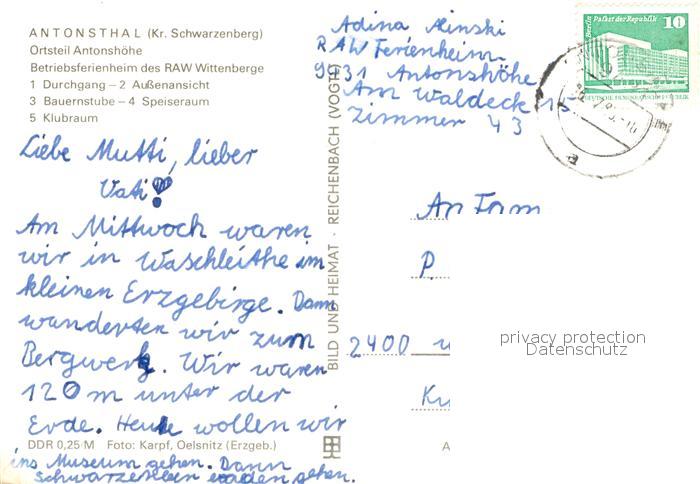 ANTONSTHAL (Kr. Schwarzenberg)
Ortsteil Antonshöhe
Betriebsferienheim des RAW Wittenberge
1 Durchgang – 2 Außenansicht
3 Bauernstube – 4 Speiseraum
5 Klubraum
Liebe Mutti, lieber
Vati!
Am Mittwoch waren
wir in Waschleithe im
kleinen Erzgebirge. Dann
wanderten wir zum
Bergwerk. Wir waren
120 m unter der
Erde. Heute wollen wir
ins Museum gehen. Dann
gehen.
DDR 0,25 M Foto: Karpf, Oelsnitz (Erzgeb.)
BILD UND HEIMAT · REICHENBACH (VOGTL)
Adina
RAW Ferienheim
9431 Antonshöhe
Am Waldeck
Zimmer 43
Berlin Palast der Republik
10
DEUTSCHE DEMOKRATISCHE REPUBLIK
An Fam
P.
2400
privacy protection
Datenschutz
A